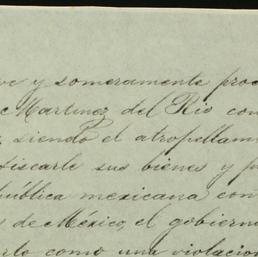 ve y someramente proc
c Martinez del Rio con
siendo el atropellam
fiscarle sus bienes y p
pública mexicana con
s de México, el gobiern
rlo como una violacion